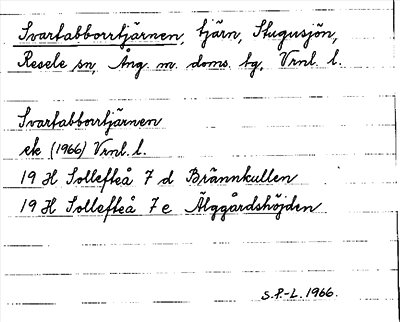 Svartabborrtjärnen, tjärn, Stugusjön,
Resele sn, Ång. m. doms. bg, Vrnl. l.
Svartabborrtjärnen
ek (1966) Vrnl. l.
19 H Sollefteå 7 d Brännkullen
19 H Sollefteå 7 e Älggårdshöjden
S.P.-L. 1966.